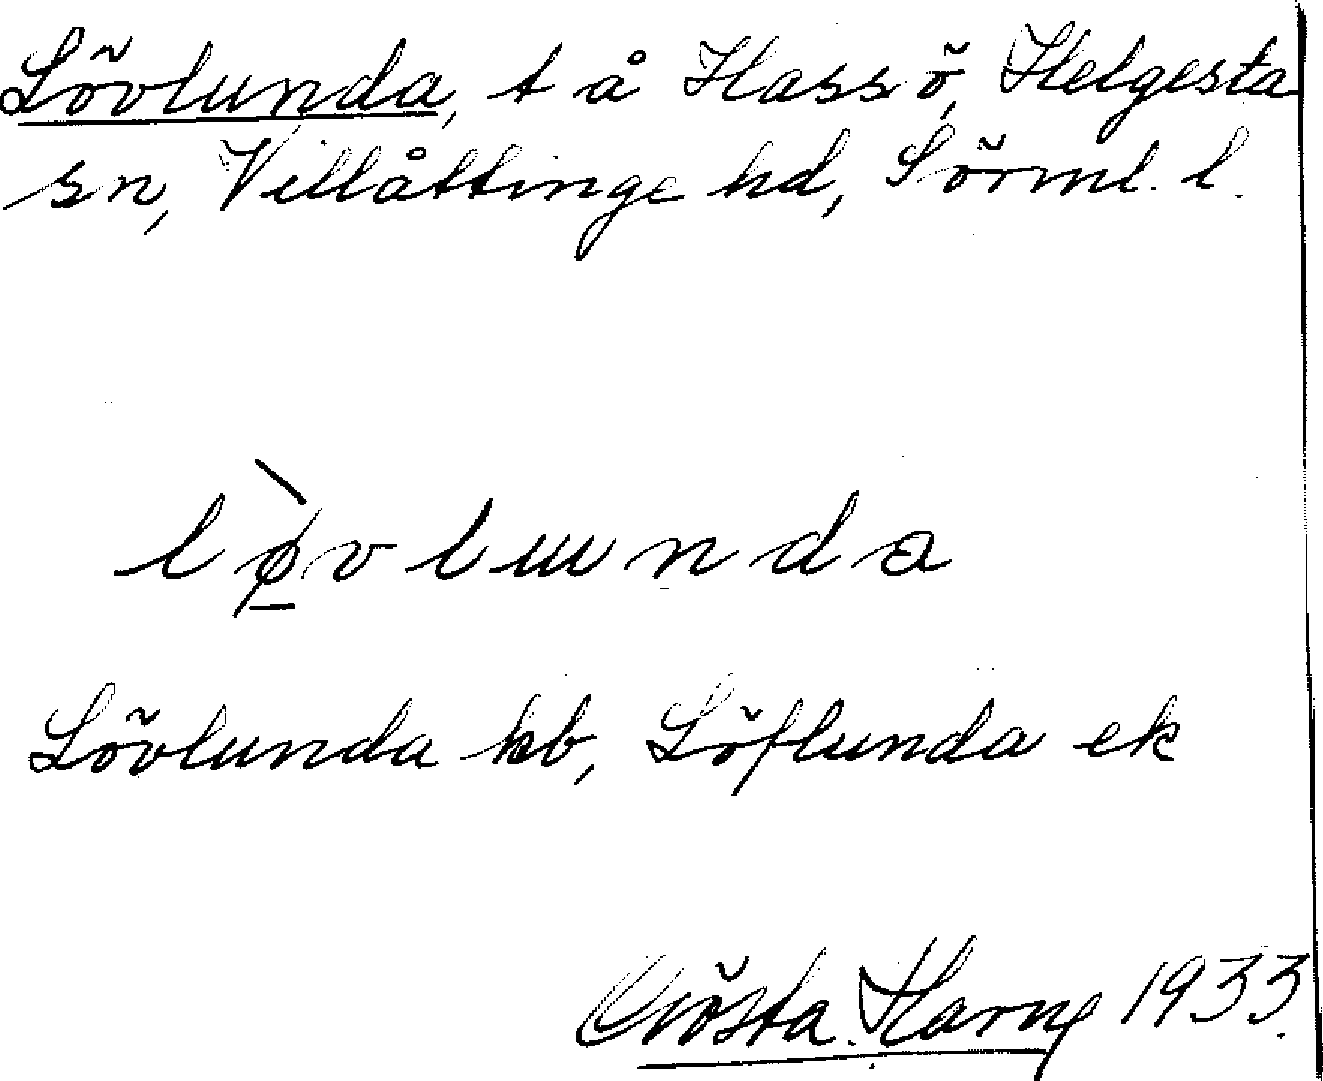 Lövlunda, t å Hassö, Helgesta
sn, Villåttinge hd, Sörml. l.
lø̱̀vlɯnda
Lövlunda kb, Löflunda ek
Gösta Harne 1933.